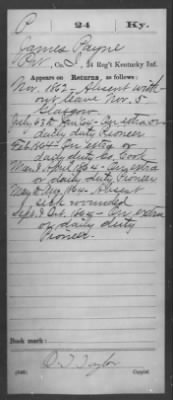 P 24 Ky.
James Payne
Pvt, Co. I, 24 Reg't Kentucky Inf.
Appears on Returns, as follows:
Nov. 1862 - Absent with
out leave Nov. 5
Glasgow
July 63 to Jan 64 - On extra or
daily duty Pioneer
Feb. 1864 On extra or
daily duty Co. Cook
Mar & April 1864 - On extra
or daily duty Pioneer
May to Aug 1864 - Absent
sick wounded
Sept & Oct. 1864 - On extra
or daily duty
Pioneer.
Book mark:
D. T. Taylor
(546) Copyist.